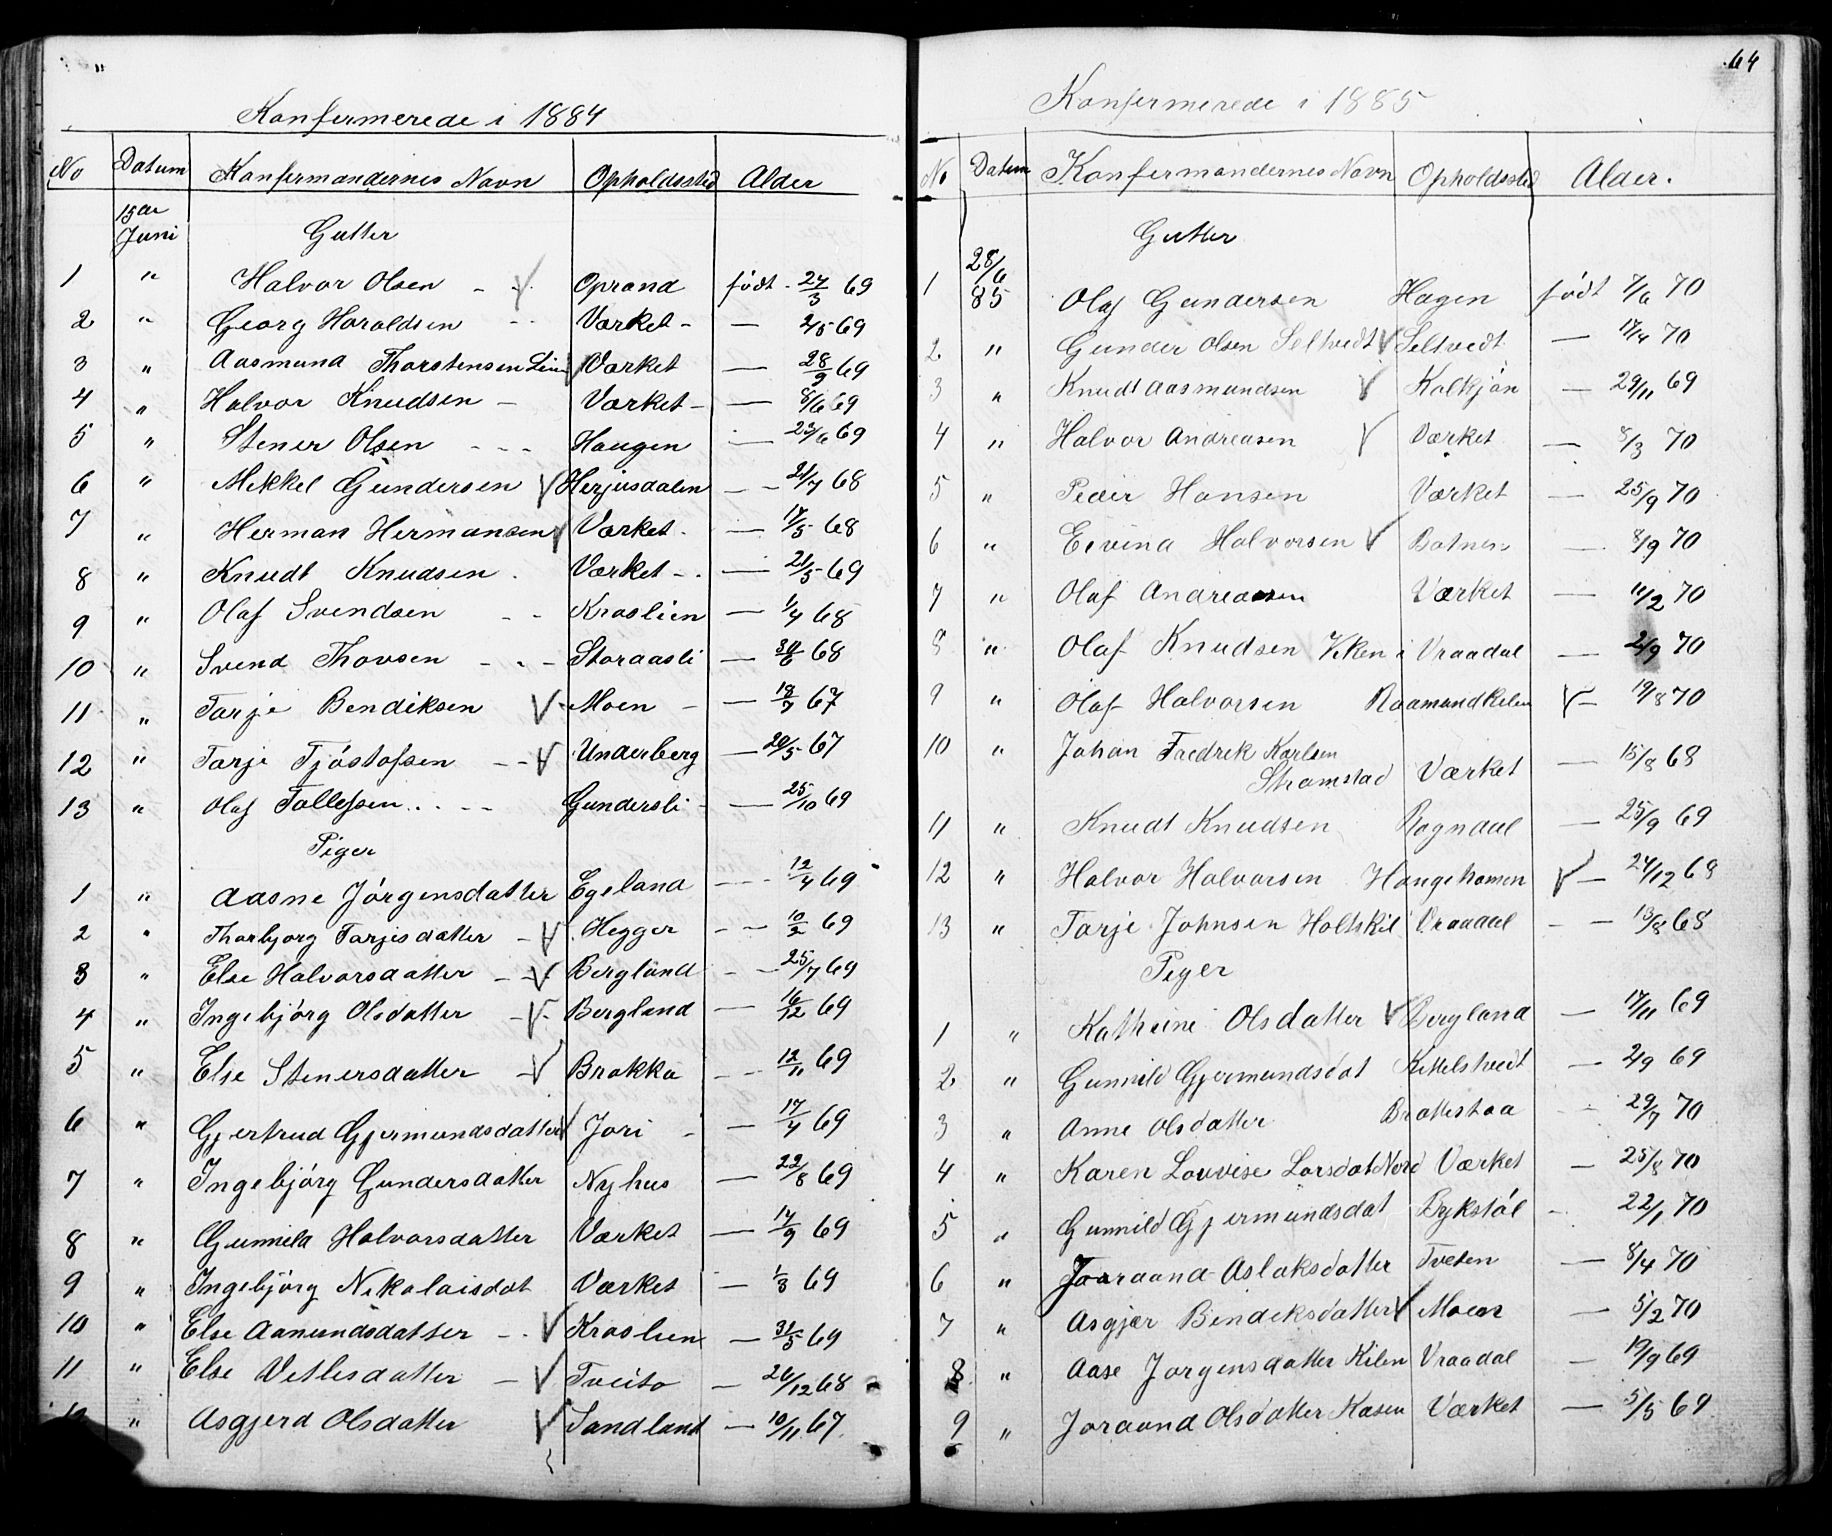 "
Konfermerede i 1884
No Datum Konfermandernes Navn Opholdssted Alder
15de
Juni Gutter
1 " Halvor Olsen - - Oprand født - 24/3 69
2 " Georg Haroldsen - - Værket - — 2/5 69
3 " Aasmund Thorstensen Værket — 28/9 69
4 " Halvor Knudsen - Værket - — 8/6 69
5 " Stener Olsen - - - Haugen — 23/6 69
6 " Mikkel Gundersen Herjusdalen — - 21/7 68
7 " Herman Hermansen Værket - — 17/5 68
8 " Knudt Knudsen - Værket - - — 21/5 69
9 " Olaf Svendsen - - Kroslien — 1/4 68
10 " Svend Thovsen - - - Storaasli — 30/6 68
11 " Tarje Bendiksen Moen - — 18/7 67
12 " Tarje Tjøstofsen - - Underberg — 20/5 67
13 " Olaf Tollefsen - - - - Gundersli - — 25/10 69
Piger
1 " Aasne Jørgensdatter Egeland - - - 12/4 69
2 " Thorbjorg Tarjesdatter - Hegger - — 10/2 69
3 " Else Halvorsdatter - - Bergland - - 25/7 69
4 " Ingebjørg Olsdatter - - Bergland — 16/12 69
5 " Else Stenersdatter - Brokka - - 12/11 69
6 " Gjertrud Gjermundsdatter Jori - — 17/4 69
7 " Ingebjørg Gundersdatter Nyhus — 22/8 69
8 " Gunnild Halvorsdatter Værket — 14/9 69
9 " Ingebjørg Nikolaisdat Værket — 1/3 69
10 " Else Aanundsdatter - - Kroslien — 31/5 69
11 " Else Vetlesdatter - Tveito — 26/12 68
12 " Asgjerd Olsdatter Sandland — 10/11 67
64
Konfermerede i 1885
No Datum Konfermandernes Navn Opholdssted Alder.
Gutter
1 28/6 85 Olaf Gundersen Hagen født 7/6 70
2 " Gunder Olsen Seltvedt Seltvedt — 17/4 70
3 " Knudt Aasmundsen Kolkjön — 29/11 69
4 " Halvor Andreasen Værket — 8/3 70
5 " Peder Hansen Værket — 25/9 70
6 " Eivind Halvorsen Botnen — 8/9 70
7 " Olaf Andreasen Værket — 11/2 70
8 " Olaf Knudsen Viken i Vraadal — 2/9 70
9 " Olaf Halvorsen Raamundkilen — 19/8 70
10 " Johan Fredrik Karlsen
Strømstad Værket — 15/8 68
11 " Knudt Knudsen Rogndal — 25/9 69
12 " Halvor Halvorsen Haugehomen — 24/12 68
13 " Tarje Johnsen Holtskil Vraadal - — 13/8 68
Piger
1 " Kathrine Olsdatter Bergland — 17/11 69
2 " Gunnild Gjermundsdat Kittelstvedt — 2/9 69
3 " Anne Olsdatter Brottestaa - 29/7 70
4 " Karen Lovvise Larsdat Nord Værket — 25/8 70
5 " Gunnild Gjermundsdat Bykstøl - 22/1 70
6 " Joraand Aslaksdatter Tveten — 8/4 70
7 " Asgjær Bendeksdatter Moen — 5/2 70
8 " Aase Jorgensdatter Kilen Vraadal — 19/9 69
9 " Joraand Olsdatter Kasen Værket — 5/5 69